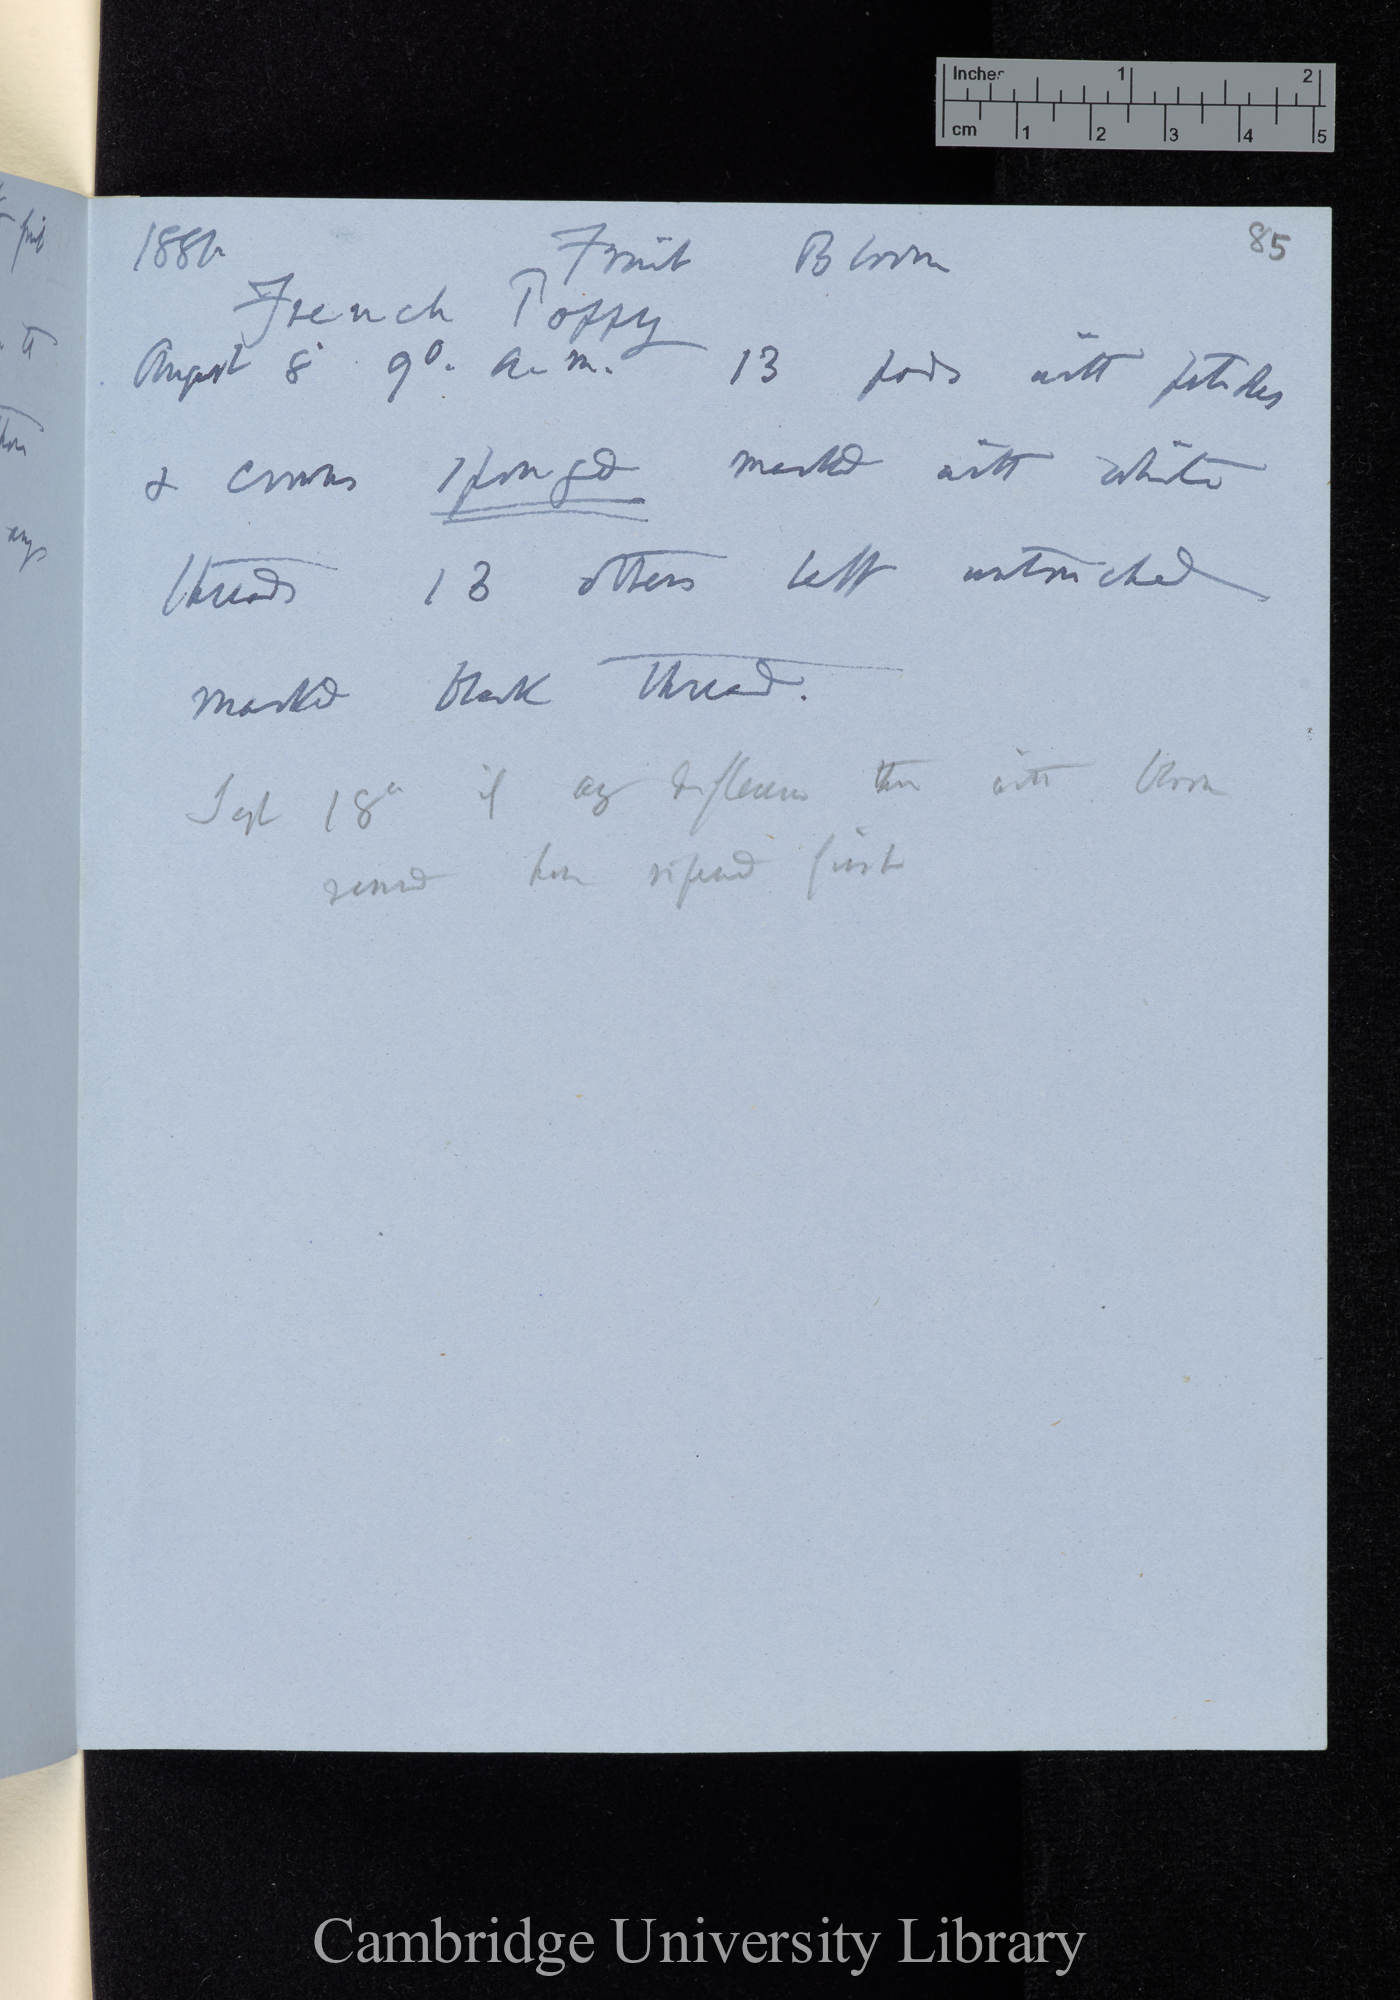 Inches 1 2
cm 1 2 3 4 5
85
Fruit Bloom
French Poppy
August 8 9°. a.m. 13 pods with
& crowns sponged marked with white
threads 13 others left untouched
marked black thread.
Sept 18 if any difference those with bloom
removed have ripened first
Cambridge University Library